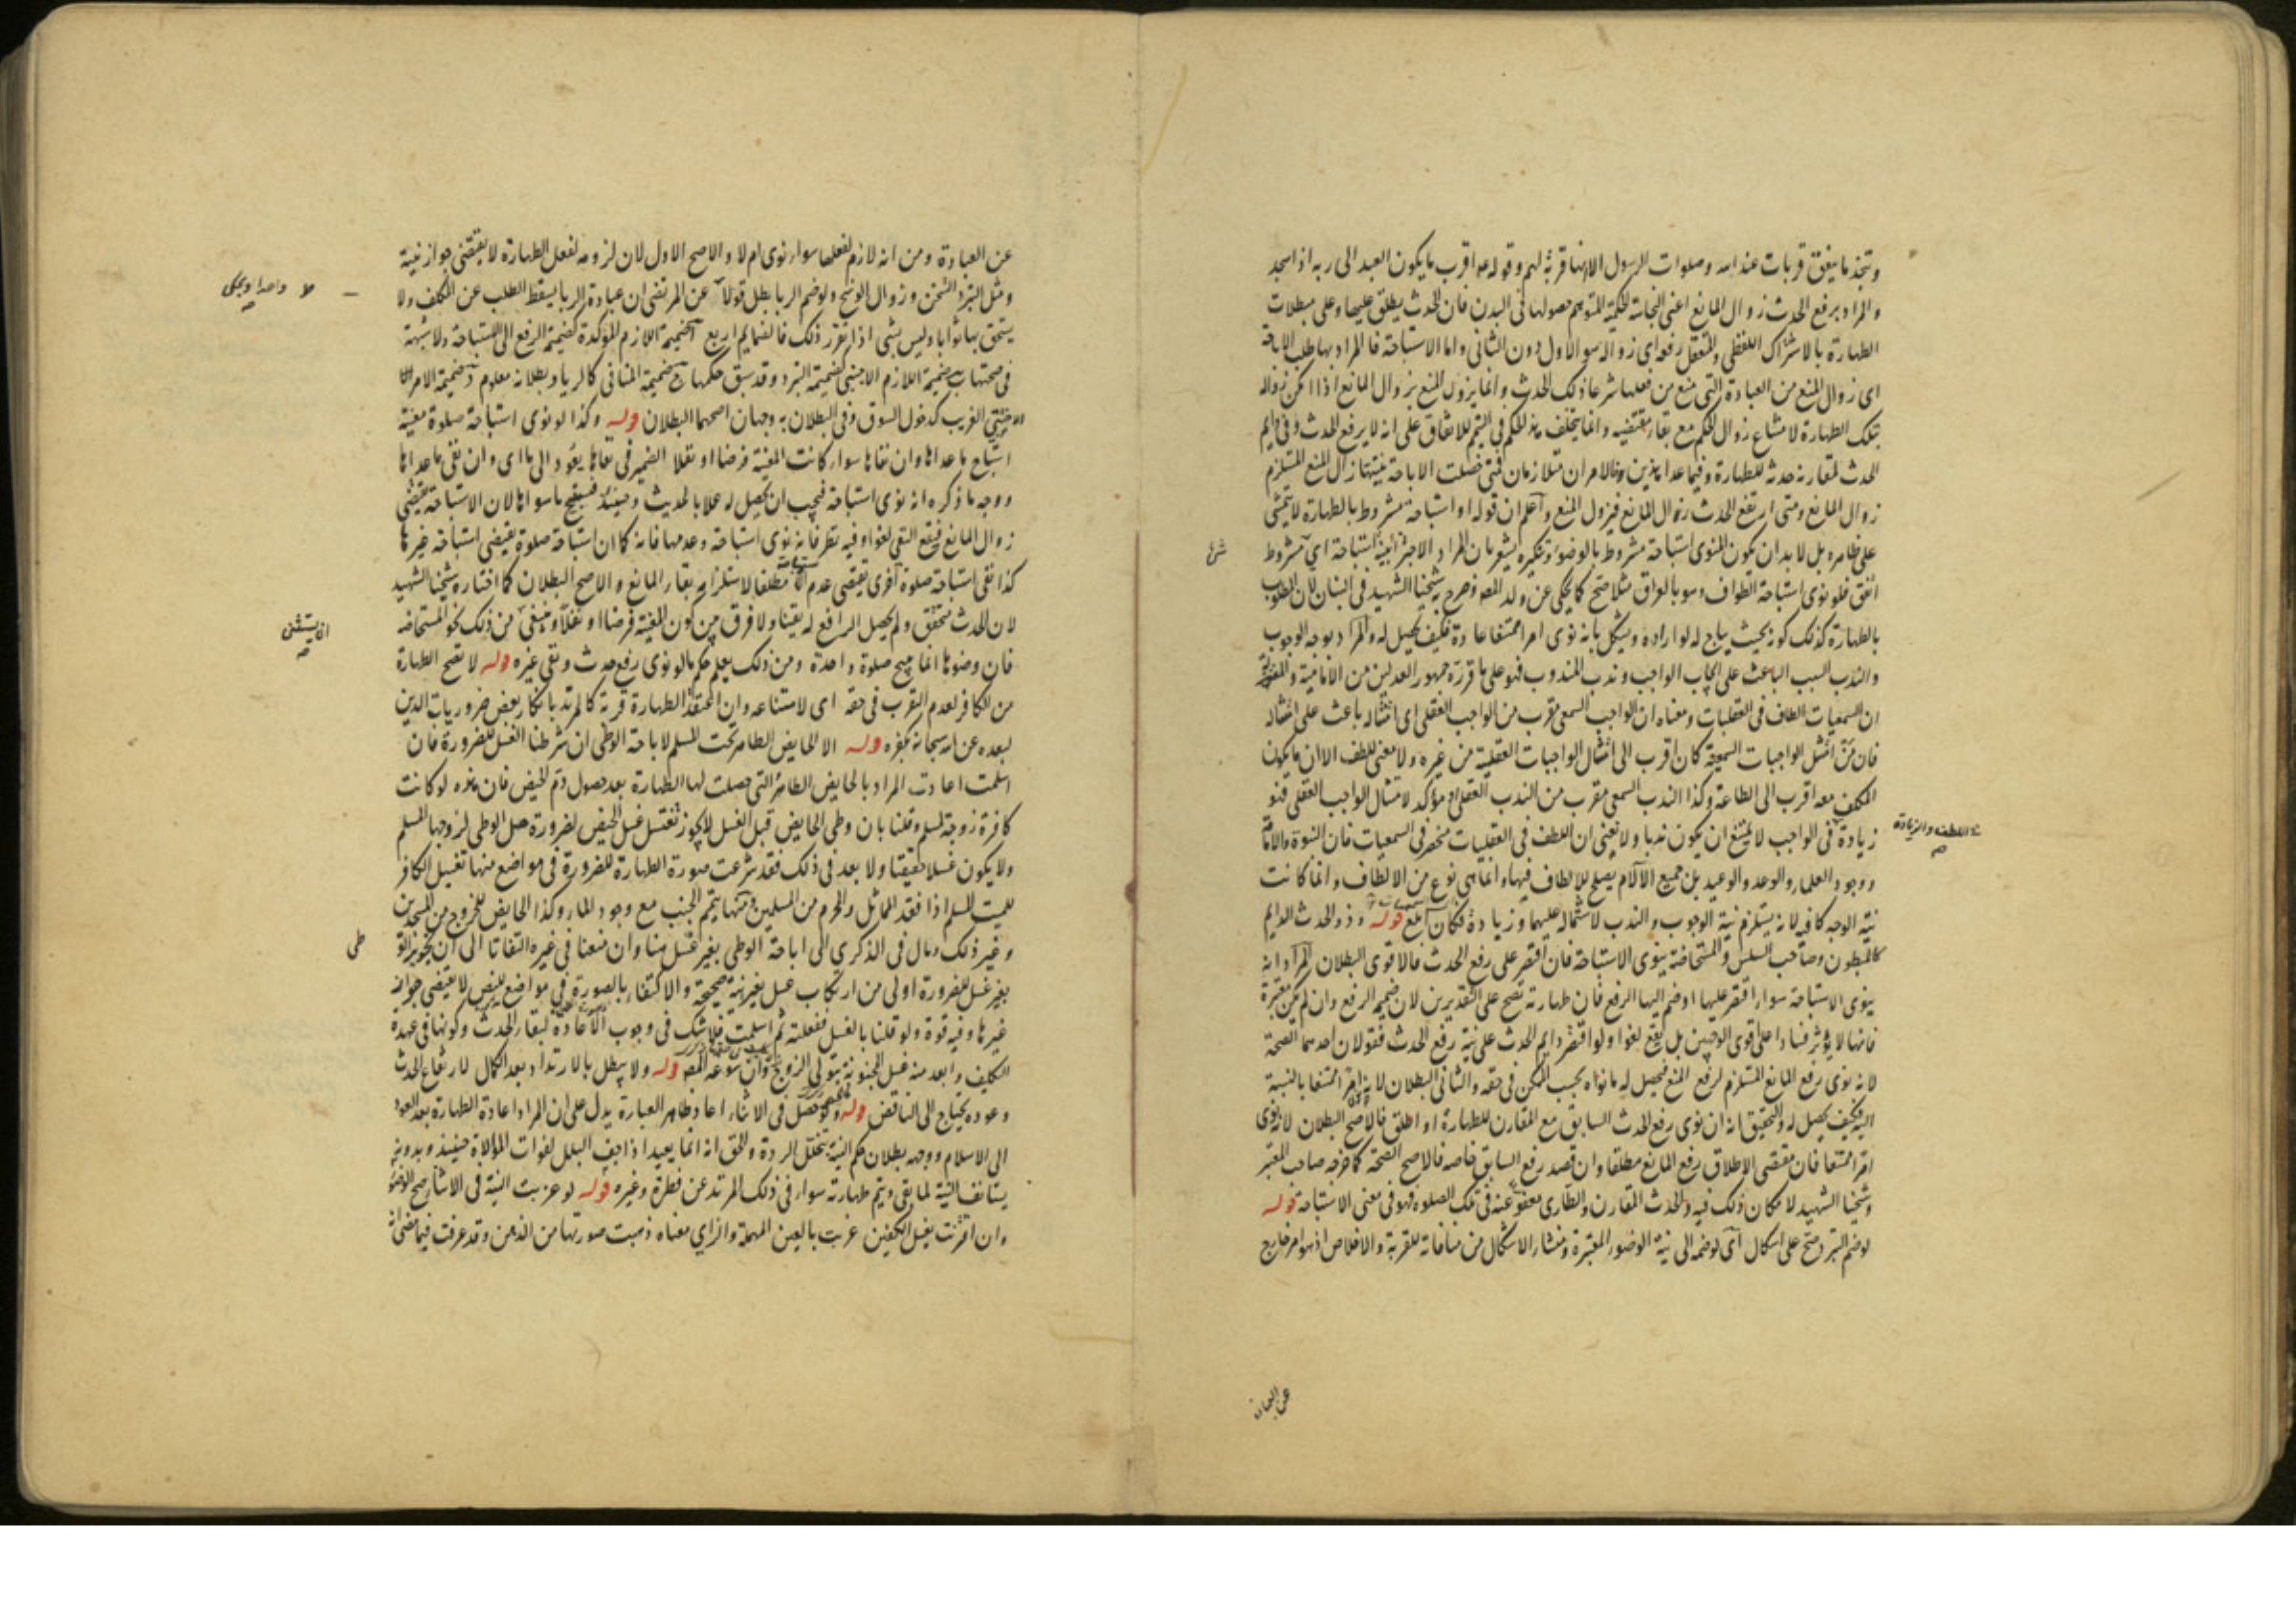 ويتخذ ما ينفق قربات عند الله وصلوات الرسول الا انها قربة لهم وقوله عه اقرب ما يكون العبد الى ربه اذا سجد
والمراد برفع الحدث زوال المانع اعني النجاسة الحكمية المتوهم حصولها في البدن فان الحدث يطلق عليها وعلى مبطلات
الطهارة بالاشتراك اللفظي والمتعقل رفعه اي زواله هو الاول دون الثاني واما الاستباحة فالمراد بها طلب الاباحة
اى زوال المنع من العبادة التي منع من فعلها شرعا ذلك الحدث وانما يزول المنع بزوال المانع اذا امكن زواله
بتلك الطهارة لامتناع زوال الحكم مع بقاء مقتضيه وانما يتخلف هذا الحكم في التيمم للاتفاق على انه لا يرفع الحدث وفي دايم
الحدث لمقارنة حدثه للطهارة وفيما عدا هذين فالامران متلازمان فمتى حصلت الاباحة بنيتها زال المنع المستلزم
زوال المانع ومتى ارتفع الحدث زال المانع فيزول المنع واعلم ان قوله او استباحة مشروط بالطهارة لا يتمشى
على ظاهره بل لا بد ان يكون المنوى استباحة مشروط بالوضوء وتنكيره يشعر بان المراد الاجتزاء بنية استباحة اي مشروط
اتفق فلو نوى استباحة الطواف وهو بالعراق مثلا صح كما يحكى عن ولد المصه وصرح به شيخنا الشهيد في البيان لان المطلوب
بالطهارة كذلك كونه بحيث يباح له لو اراده ويشكل بانه نوى امرا ممتنعا عادة فكيف يحصل له والمراد بوجه الوجوب
والندب السبب الباعث على ايجاب الواجب وندب المندوب فهو على ما قرره جمهور العدلين من الامامية والمعتزلة
ان السمعيات الطاف في العقليات ومعناه ان الواجب السمعى مقرب من الواجب العقلى اى امتثاله باعث على امتثاله
فان من امتثل الواجبات السمعية كان اقرب الى امتثال الواجبات العقلية من غيره ولا معنى للطف الا ان ما يكون
المكلف معه اقرب الى الطاعة وكذا الندب السمعى مقرب من الندب العقلى او مؤكد لامتثال الواجب العقلى فهو
زيادة في الواجب لا يمتنع ان يكون ندبا ولا نعني ان اللطف في العقليات منحصر في السمعيات فان النبوة والامامة
ه اللطف والزيادة صه
ووجود العلماء والوعد والوعيد بل جميع الآلام يصلح للالطاف فيها وانما هى نوع من الالطاف وانما كانت
نية الوجه كافية لانه يستلزم نية الوجوب والندب لاشتماله عليهما وزيادة فكان ابلغ قوله وذو الحدث الدايم
كالمبطون وصاحب السلس والمستحاضة ينوى الاستباحة فان اقتصر على رفع الحدث فالاقوى البطلان المراد انه
ينوى الاستباحة سواء اقتصر عليها او ضم اليها الرفع فان طهارته تصح على التقديرين لان ضميمه الرفع وان لم يكن معتبرة
فانها لا يؤثر فسادا على اقوى الوجهين بل يقع لغوا ولو اقتصر دايم الحدث على نية رفع الحدث فقولان احدهما الصحة
لانه نوى رفع المانع المستلزم لرفع المنع فيحصل له ما نواه بحسب الممكن في حقه والثانى البطلان لانه نوى امرا ممتنعا بالنسبة
اليه فكيف يحصل له والتحقيق انه ان نوى رفع الحدث السابق مع المقارن للطهارة او اطلق فالاصح البطلان لانه نوى
امرا ممتنعا فان مقتضى الاطلاق رفع المانع مطلقا وان قصد رفع السابق خاصه فالاصح الصحة كما خرجه صاحب المعتبر
وشيخنا الشهيد لامكان ذلك فيه والحدث المقارن والطارى معفو عنه في تلك الصلوه فهو في معنى الاستباحة قوله
لو ضم التبرد صح على اشكال اى لو ضمه الى نية الوضوء المعتبرة ومنشاء الاشكال من منافاته للقربة والاخلاص اذ هو امر خارج
عن العبادة
عن العبادة ومن انه لازم لفعلها سواء نوى ام لا والاصح الاول لان لزومه لفعل الطهارة لا يقتضى جواز نيته
ومثل التبرد التسخن وزوال الوسخ ولو ضم الريا بطل قولا عن المرتضى ان عبادة الريا يسقط الطلب عن المكلف ولا
يستحق بها ثوابا وليس بشى اذا تقرر ذلك فالضمايم اربع آ ضميمة اللازم المؤكدة كضميمة الرفع الى الاستباحة ولا شبهة
في صحتها ب ضميمة اللازم الاجنبى كضميمة التبرد وقد سبق حكمها ج ضميمة المنافى كالريا وبطلانه معلوم د ضميمة الامر
الاجنبي الغريب كدخول السوق وفي البطلان به وجهان اصحهما البطلان قوله وكذا لو نوى استباحة صلوة معينة
استباح ما عداها وان نفاها سواء كانت المعينة فرضا او نفلا الضمير في نفاها يعود الى ما اى وان نفى ما عداها
ووجه ما ذكره انه نوى استباحة فيجب ان يحصل له عملا بالحديث وحينئذ فيستبيح ما سواها لان الاستباحة يقتضى
زوال المانع فيقع النفي لغوا وفيه نظر فانه نوى استباحة وعدمها فانه كما ان استباحة صلوة يقتضى استباحة غيرها
كذا نفى استباحة صلوة اخرى يقتضى عدم الاستباحة مطلقا لاستلزامه بقاء المانع والاصح البطلان كما اختاره شيخنا الشهيد
لان الحدث متحقق ولم يحصل الرافع له يقينا ولا فرق بين كون المعينة فرضا او نفلا وينبغي من ذلك نحو المستحاضه
ان يستثنى صه
فان وضوءها انما يبيح صلوة واحدة ومن ذلك يعلم حكم ما لو نوى رفع حدث ونفى غيره قوله لا تصح الطهارة
من الكافر لعدم التقرب في حقه اى لامتناعه وان اعتقد الطهارة قربة كالمرتد بانكار بعض ضروريات الدين
لبعده عن الله سبحانه بكفره قوله الا الحايض الطاهر تحت المسلم لاباحة الوطى ان شرطنا الغسل للضرورة فان
اسلمت اعادت المراد بالحايض الطاهر التي حصلت لها الطهارة بعد حصول دم الحيض فان هذه لو كانت
كافرة زوجة لمسلم وقلنا بان وطى الحايض قبل الغسل لا يجوز تغتسل غسل الحيض لضرورة حل الوطى لزوجها المسلم
ولا يكون غسلا حقيقتا ولا بعد في ذلك فقد شرعت صورة الطهارة للضرورة في مواضع منها تغسيل الكافر
للميت المسلم اذا فقد المماثل والمحرم من المسلمين ومنها تيمم الجنب مع وجود الماء وكذا الحايض للخروج من المسجدين
وغير ذلك ومال في الذكرى الى اباحة الوطى بغير غسل هنا وان منعنا في غيره التفاتا الى ان تجويز الوطى
بغير غسل للضرورة اولى من ارتكاب غسل بغير نية صحيحة والاكتفاء بالصورة في مواضع للنص لا يقتضى جوازه
غيرها وفيه قوة ولو قلنا بالغسل ففعلته ثم اسلمت فلا شك في وجوب الاعادة لبقاء الحدث وكونها في عهدة
التكليف وابعد منه غسل المجنونة بتولى الزوج وان سوغه المصه قوله ولا يبطل بالارتداد بعد الكمال لارتفاع الحدث
وعوده يحتاج الى الناقض قوله ولو حصل في الاثناء اعاد ظاهر العبارة يدل على ان المراد اعادة الطهارة بعد العود
الى الاسلام ووجهه بطلان حكم النية بتخلل الردة والحق انه انما يعيد اذا جف البلل لفوات الموالاة حينئذ وبدونه
يستانف النية لما بقى ويتم طهارته سواء في ذلك المرتد عن فطرة وغيره قوله لو عزبت النية في الاثناء صح الوضوء
وان اقترنت بغسل الكفين عزبت بالعين المهملة والزاي معناه ذهبت صورتها من الذهن وقد عرفت فيما مضى انه